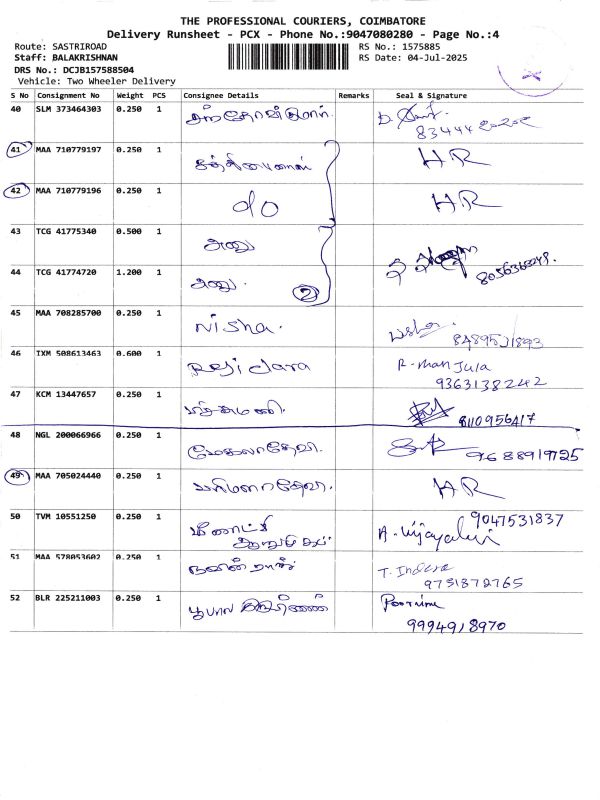 THE PROFESSIONAL COURIERS, COIMBATORE
Delivery Runsheet - PCX - Phone No.:9047080280 - Page No.:4
Route: SASTRIROAD
RS No.: 1575885
Staff: BALAKRISHNAN
RS Date: 04-Jul-2025
DRS No.: DCJB157588504
Vehicle: Two Wheeler Delivery
S No Consignment No Weight PCS Consignee Details Remarks Seal & Signature
40 SLM 373464303 0.250 1
41 MAA 710779197 0.250 1 HR
42 MAA 710779196 0.250 1 d/o HR
43 TCG 41775340 0.500 1 அனு
44 TCG 41774720 1.200 1 அனு. 2
45 MAA 708285700 0.250 1 Nisha.
8489521893
46 IXM 508613463 0.600 1 Reji clara R-Manjula
9363138242
47 KCM 13447657 0.250 1
8110956417
48 NGL 200066966 0.250 1 மேகலாதேவி.
9688919725
49 MAA 705024440 0.250 1 பரிமளாதேவி. HR
50 TVM 10551250 0.250 1 மீனாட்சி 9047531837
A. Vijayalaxmi
51 MAA 578053602 0.250 1 T. Indira
9751872765
52 BLR 225211003 0.250 1 Poornima
9994918970